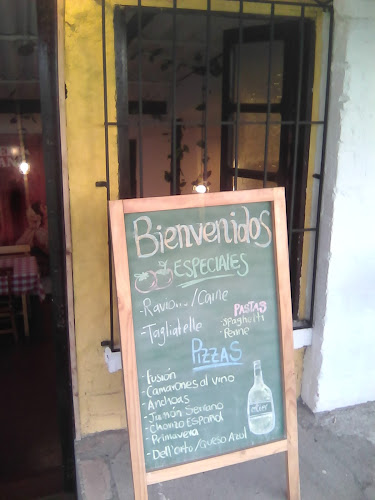 Bienvenidos
ESPECIALES
- Ravio.../Carne
- Tagliatelle
PASTAS
- Spaghetti
- Penne
PIZZAS
- Fusión
- Camarones al vino
- Anchoas
- Jamón Serrano
- Chorizo Español
- Primavera
- Dell'orto/Queso Azul